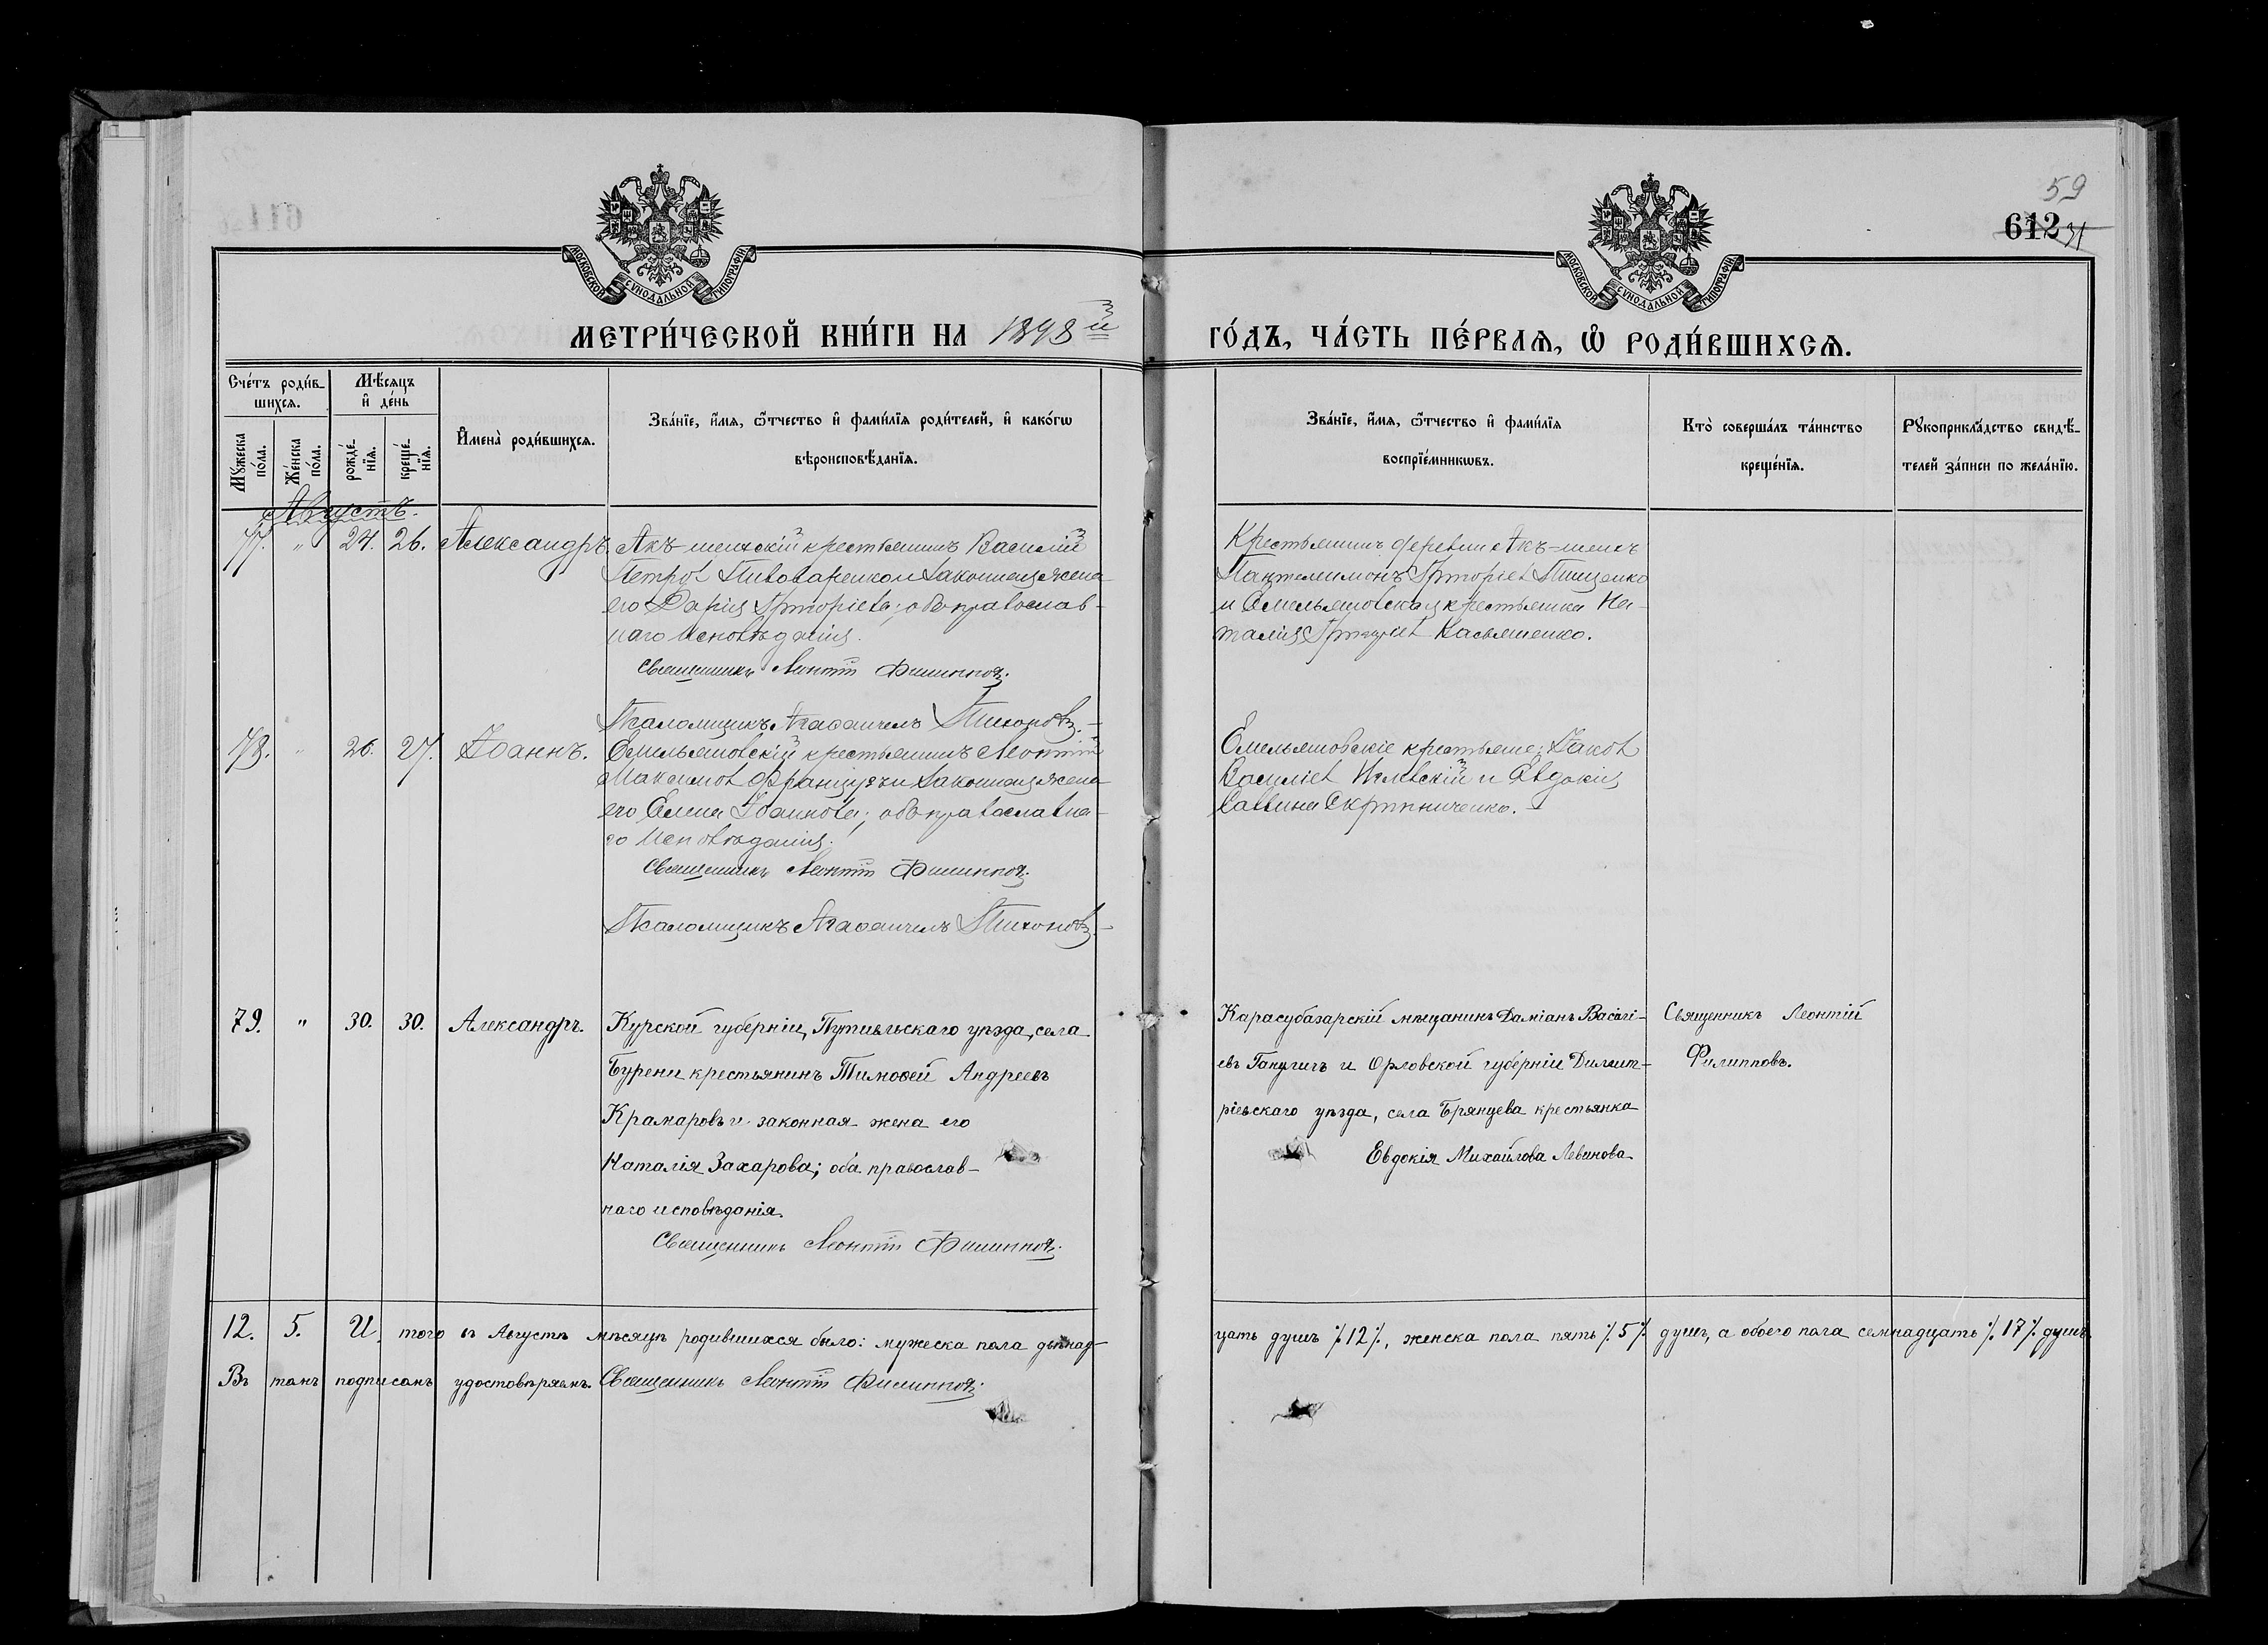 59
612 31
МОСКОВСКОЙ СѴНОДАЛЬНОЙ ТИПОГРАФІИ
МОСКОВСКОЙ СѴНОДАЛЬНОЙ ТИПОГРАФІИ
МЕТРИ́ЧЕСКОЙ КНИ́ГИ НА 1898й
ГО́ДЪ, ЧА́СТЬ ПЕ́РВАѦ, Ѡ РОДИ́ВШИХСѦ.
Сче́тъ роди́в-
шихсѧ.
Мѣ́сѧцъ
и҆ де́нь
Мꙋ́жеска
по́ла.
Же́нска
по́ла.
рожде́-
нїѧ.
креще́-
нїѧ.
И҆мена̀ роди́вшихсѧ.
Зва́нїе, и҆́мѧ, ѻ҆́тчество и҆ фами́лїѧ роди́телей, и҆ како́гѡ
вѣроисповѣ́данїѧ.
Зва́нїе, и҆́мѧ, ѻ҆́тчество и҆ фами́лїѧ
воспрїе́мникѡвъ.
Кто̀ соверша́лъ та́инство
креще́нїѧ.
Рꙋкоприкла́дство свидѣ́-
телей за́писи по жела́нїю.
Августъ.
77. " 24. 26. Александръ. Акъ-шеихскій крестьянинъ Василій
Петровъ Пивоваренко и законная жена
его Дарія Григоріева; оба православ-
наго исповѣданія.
Священникъ Леонтій Филипповъ.
Псаломщикъ Агаѳангелъ Тихоновъ.
Крестьянинъ деревни Акъ-шеихъ
Пантелеимонъ Григоріевъ Тищенко
и Емельяновская крестьянка На-
талія Григорьев Касьяненко.
78. " 26. 27. Іоаннъ. Емельяновскій крестьянинъ Леонтій
Максимовъ Французъ и законная жена
его Елена Іоаннова; оба православна-
го исповѣданія.
Священникъ Леонтій Филипповъ.
Псаломщикъ Агаѳангелъ Тихоновъ.
Емельяновскіе крестьяне: Іаковъ
Василіевъ и Евдокія
Саввина Скрыпниченко.
79. " 30. 30. Александръ. Курской губерніи, Путивльскаго уѣзда, села
Бурени крестьянинъ Тимоѳей Андреевъ
Крамаровъ и законная жена его
Наталія Захарова; оба православ-
наго исповѣданія.
Священникъ Леонтій Филипповъ.
Карасубазарскій мѣщанинъ Даміанъ Васілі-
евъ и Орловской губерніи Димит-
ріевскаго уѣзда, села Брянцева крестьянка
Евдокія Михайлова Левинова
Священникъ Леонтій
Филипповъ.
12. 5. И того въ Августѣ мѣсяцѣ родившихся было: мужеска пола двѣнад-
цать душъ ⁒12⁒, женска пола пять ⁒5⁒ душъ, а обоего пола семнадцать ⁒17⁒ душъ
Въ томъ подписомъ удостовѣряемъ. Священникъ Леонтій Филипповъ.